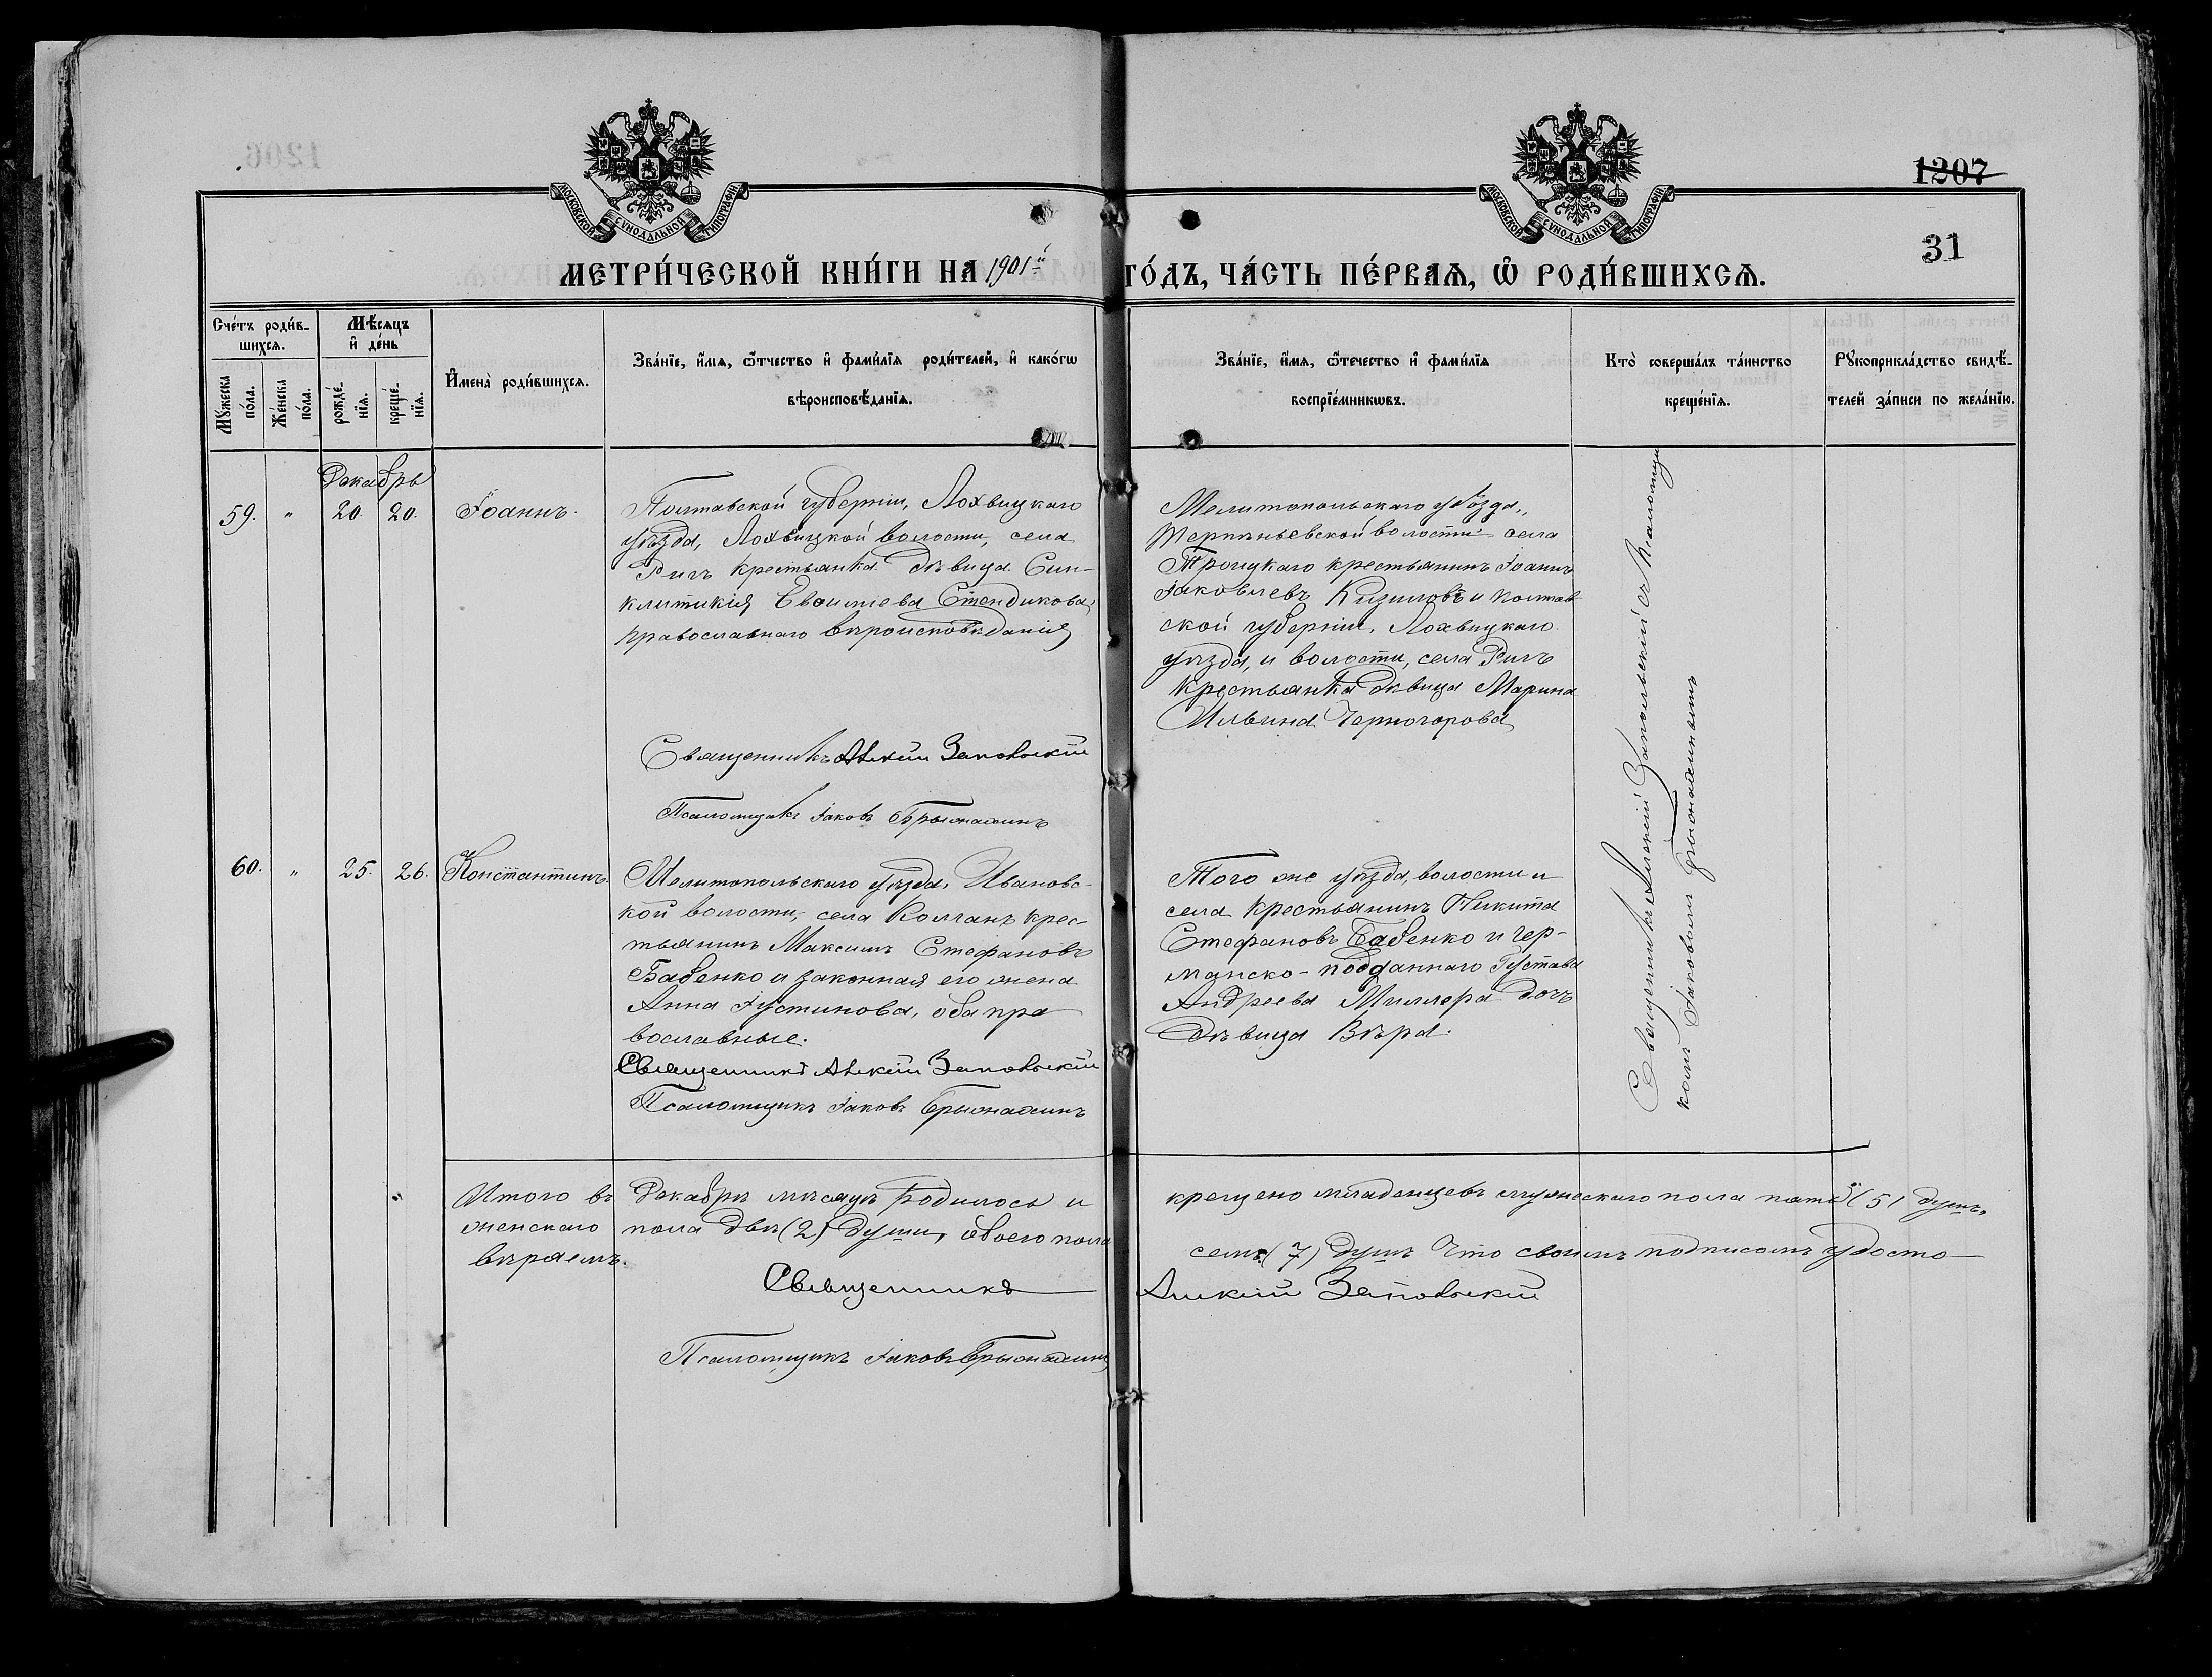 1207
31
МОСКОВСКОЙ СѴНОДАЛЬНОЙ ТИПОГРАФІИ
МОСКОВСКОЙ СѴНОДАЛЬНОЙ ТИПОГРАФІИ
МЕТРИ́ЧЕСКОЙ КНИ́ГИ НА 1901й ГО́ДЪ, ЧА́СТЬ ПЕ́РВАѦ, Ѡ҆ РОДИ́ВШИХСѦ.
Сче́тъ роди́в-
шихсѧ.
Мꙋ́жеска
по́ла.
Же́нска
по́ла.
Мѣ́сѧцъ
и҆ де́нь
рожде́-
нїѧ.
креще́-
нїѧ.
И҆мена̀ роди́вшихсѧ.
Зва́нїе, и҆́мѧ, ѻ҆́тчество и҆ фами́лїѧ роди́телей, и҆ како́гѡ
вѣроисповѣ́данїѧ.
Зва́нїе, и҆́мѧ, ѻ҆́течество и҆ фами́лїѧ
воспрїе́мникѡвъ.
Кто̀ соверша́лъ та́инство
креще́нїѧ.
Рꙋкоприкла́дство свидѣ́-
телей за́писи по жела́нїю.
Декабрь
59. " 20. 20. Іоаннъ.
Полтавской губерніи, Лохвицкаго
уѣзда, Лохвицкой волости, села
Ригъ крестьянка дѣвица Син-
клитикія
православнаго вѣроисповѣданія
Священникъ Алексій Запольскій
Псаломщикъ Іаковъ
Мелитопольскаго уѣзда,
Терпѣньевской волости села
Троицкаго крестьянинъ Іоаннъ
Іаковлевъ Кизиловъ и Полтав-
ской губерніи, Лохвицкаго
уѣзда, и волости, села Ригъ
крестьянка дѣвица Марина
Ильина Черногорова
Священникъ Алексій Запольскій съ псаломщи
комъ Іаковомъ
60. " 25. 26. Константинъ.
Мелитопольскаго уѣзда, Ивановс-
кой волости, села Колганъ крес-
тьянинъ Максимъ Стефановъ
Бабенко и законная его жена
Анна Іустинова, оба пра
вославные.
Священникъ Алексій Запольскій
Псаломщикъ Іаковъ
Того же уѣзда, волости и
села крестьянинъ Никита
Стефановъ Бабенко и гер-
манско-подданнаго Густава
Андреева Миллера дочь
дѣвица Вѣра.
Итого въ Декабрѣ мѣсяцѣ родилось и крещено младенцевъ мужескаго пола пять (5) душъ,
женскаго пола двѣ (2) души, обоего пола семь (7) душъ Что своимъ подписомъ удосто-
вѣряемъ.
Священникъ Алексій Запольскій
Псаломщикъ Іаковъ